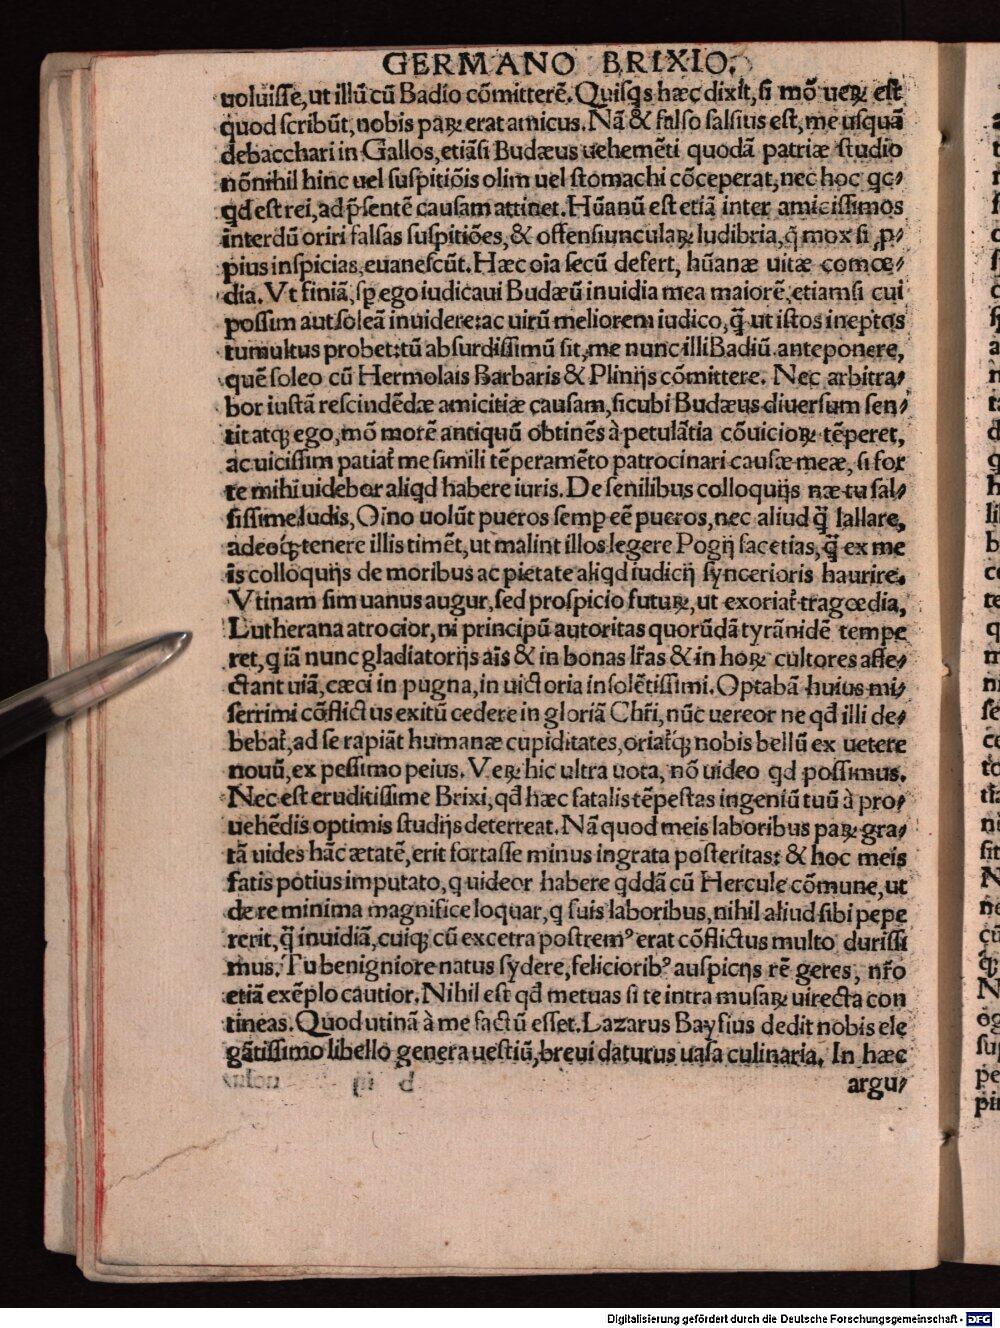 GERMANO BRIXIO.
uoluisse, ut illũ cũ Badio cõmitterẽ. Quisqs hæc dixit, si mõ ueꝝ est
quod scribũt, nobis paꝝ erat amicus. Nã & falso falsius est, me usquã
debacchari in Gallos, etiãsi Budæus uehemẽti quodã patriæ studio
nõnihil hinc uel suspitiõis olim uel stomachi cõceperat, nec hoc qc⸗
qd est rei, ad p̃sentẽ causam attinet. Hũanũ est etiã inter amicissimos
interdũ oriri falsas suspitiões, & offensiunculaꝝ ludibria, q̃ mox si ꝓ⸗
pius inspicias, euanescũt. Hæc oĩa secũ defert, hũanæ uitæ comœ⸗
dia. Vt finiã, sꝑ ego iudicaui Budæũ inuidia mea maiorẽ, etiamsi cui
possim aut soleã inuidere: ac uirũ meliorem iudico, q̃ ut istos ineptos
tumultus probet: tũ absurdissimũ sit, me nunc illi Badiũ anteponere,
quẽ soleo cũ Hermolais Barbaris & Plinijs cõmittere. Nec arbitra⸗
bor iustã rescindẽdæ amicitiæ causam, sicubi Budæus diuersum sen⸗
tit atqꝫ ego, mõ morẽ antiquũ obtinẽs à petulãtia cõuicioꝝ tẽperet,
ac uicissim patiat̃ me simili tẽperamẽto patrocinari causæ meæ, si for
te mihi uidebor aliqd habere iuris. De senilibus colloquijs næ tu sal⸗
sissime ludis, Oino uolũt pueros semꝑ eẽ pueros, nec aliud q̃ lallare,
adeoqꝫ tenere illis timẽt, ut malint illos legere Pogij facetias, q̃ ex me
is colloquijs de moribus ac pietate aliqd iudicij syncerioris haurire.
Vtinam sim uanus augur, sed prospicio futuꝝ, ut exoriat̃ tragœdia,
Lutherana atrocior, ni principũ autoritas quorũdã tyrãnidẽ tempe
ret, q iã nunc gladiatorijs aĩs & in bonas lr̃as & in hoꝝ cultores affe⸗
ctant uiã, cæci in pugna, in uictoria insolẽtissimi. Optabã huius mi⸗
serrimi cõflictus exitũ cedere in gloriã Chr̃i, nũc uereor ne qđ illi de⸗
bebat̃, ad se rapiãt humanæ cupiditates, oriat̃qꝫ nobis bellũ ex uetere
nouũ, ex pessimo peius. Veꝝ hic ultra uota, nõ uideo qd possimus.
Nec est eruditissime Brixi, qđ hæc fatalis tẽpestas ingeniũ tuũ à pro⸗
uehẽdis optimis studijs deterreat. Nã quod meis laboribus paꝝ gra⸗
tã uides hãc ætatẽ, erit fortasse minus ingrata posteritas: & hoc meis
fatis potius imputato, q uideor habere qddã cũ Hercule cõmune, ut
de re minima magnifice loquar, q suis laboribus, nihil aliud sibi pepe
rerit, q̃ inuidiã, cuiqꝫ cũ excetra postremꝰ erat cõflictus multo durissi
mus. Tu benigniore natus sydere, felicioribꝰ auspicijs rẽ geres, nr̃o
etiã exẽplo cautior. Nihil est qđ metuas si te intra musaꝝ uirecta con
tineas. Quod utinã à me factũ esset. Lazarus Bayfius dedit nobis ele
gãtissimo libello genera uestiũ, breui daturus uasa culinaria. In hæc
argu⸗
Digitalisierung gefördert durch die Deutsche Forschungsgemeinschaft - DFG